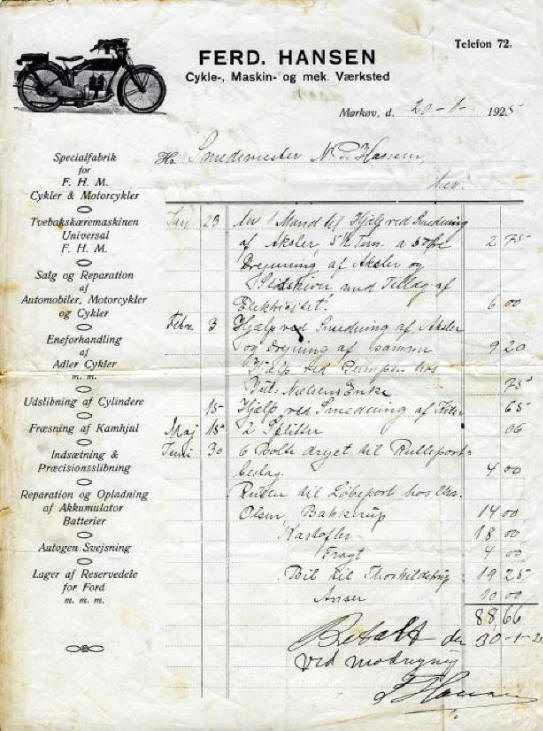 Telefon 72.
FERD. HANSEN
Cykle-, Maskin- og mek. Værksted
Mørkøv, d. 20-1- 1925
Hr. Smedemester N. P. Hansen,
her.
Specialfabrik
for
F. H. M.
Cykler & Motorcykler
Tvebakskæremaskinen
Universal
F. H. M.
Salg og Reparation
af
Automobiler, Motorcykler
og Cykler
Eneforhandling
af
Adler Cykler
m. m.
Udslibning af Cylindere
Fræsning af Kamhjul
Indsætning &
Præcisionsslibning
Reparation og Opladning
af Akkumulator
Batterier
Autogen Svejsning
Lager af Reservedele
for Ford
m. m. m.
Jan 23 1 Mand til Hjælp ved Smedning
af Aksler 5½ Tim. a 50 Øre 2 75
Drejning af Aksler og
med Tillæg af
Elektricitet. 6 00
Febr. 3 Hjælp ved Smedning af Aksler
og Drejning af samme 9 20
Hjælp ved Pumpen hos
Nielsens Enke 75
15 Hjælp ved Smedning af 65
Maj 15 2 Splitter 06
Juni 30 6 Bolte drejet til Rulleport-
beslag. 4 00
Ruller til Løbeport hos Chr.
Olsen, Bakkerup 14 00
Kartofler 18 00
Fragt 4 00
Bil til 19 25
10 00
88,66
Betalt den 30-1-2
ved modregning
F Hansen